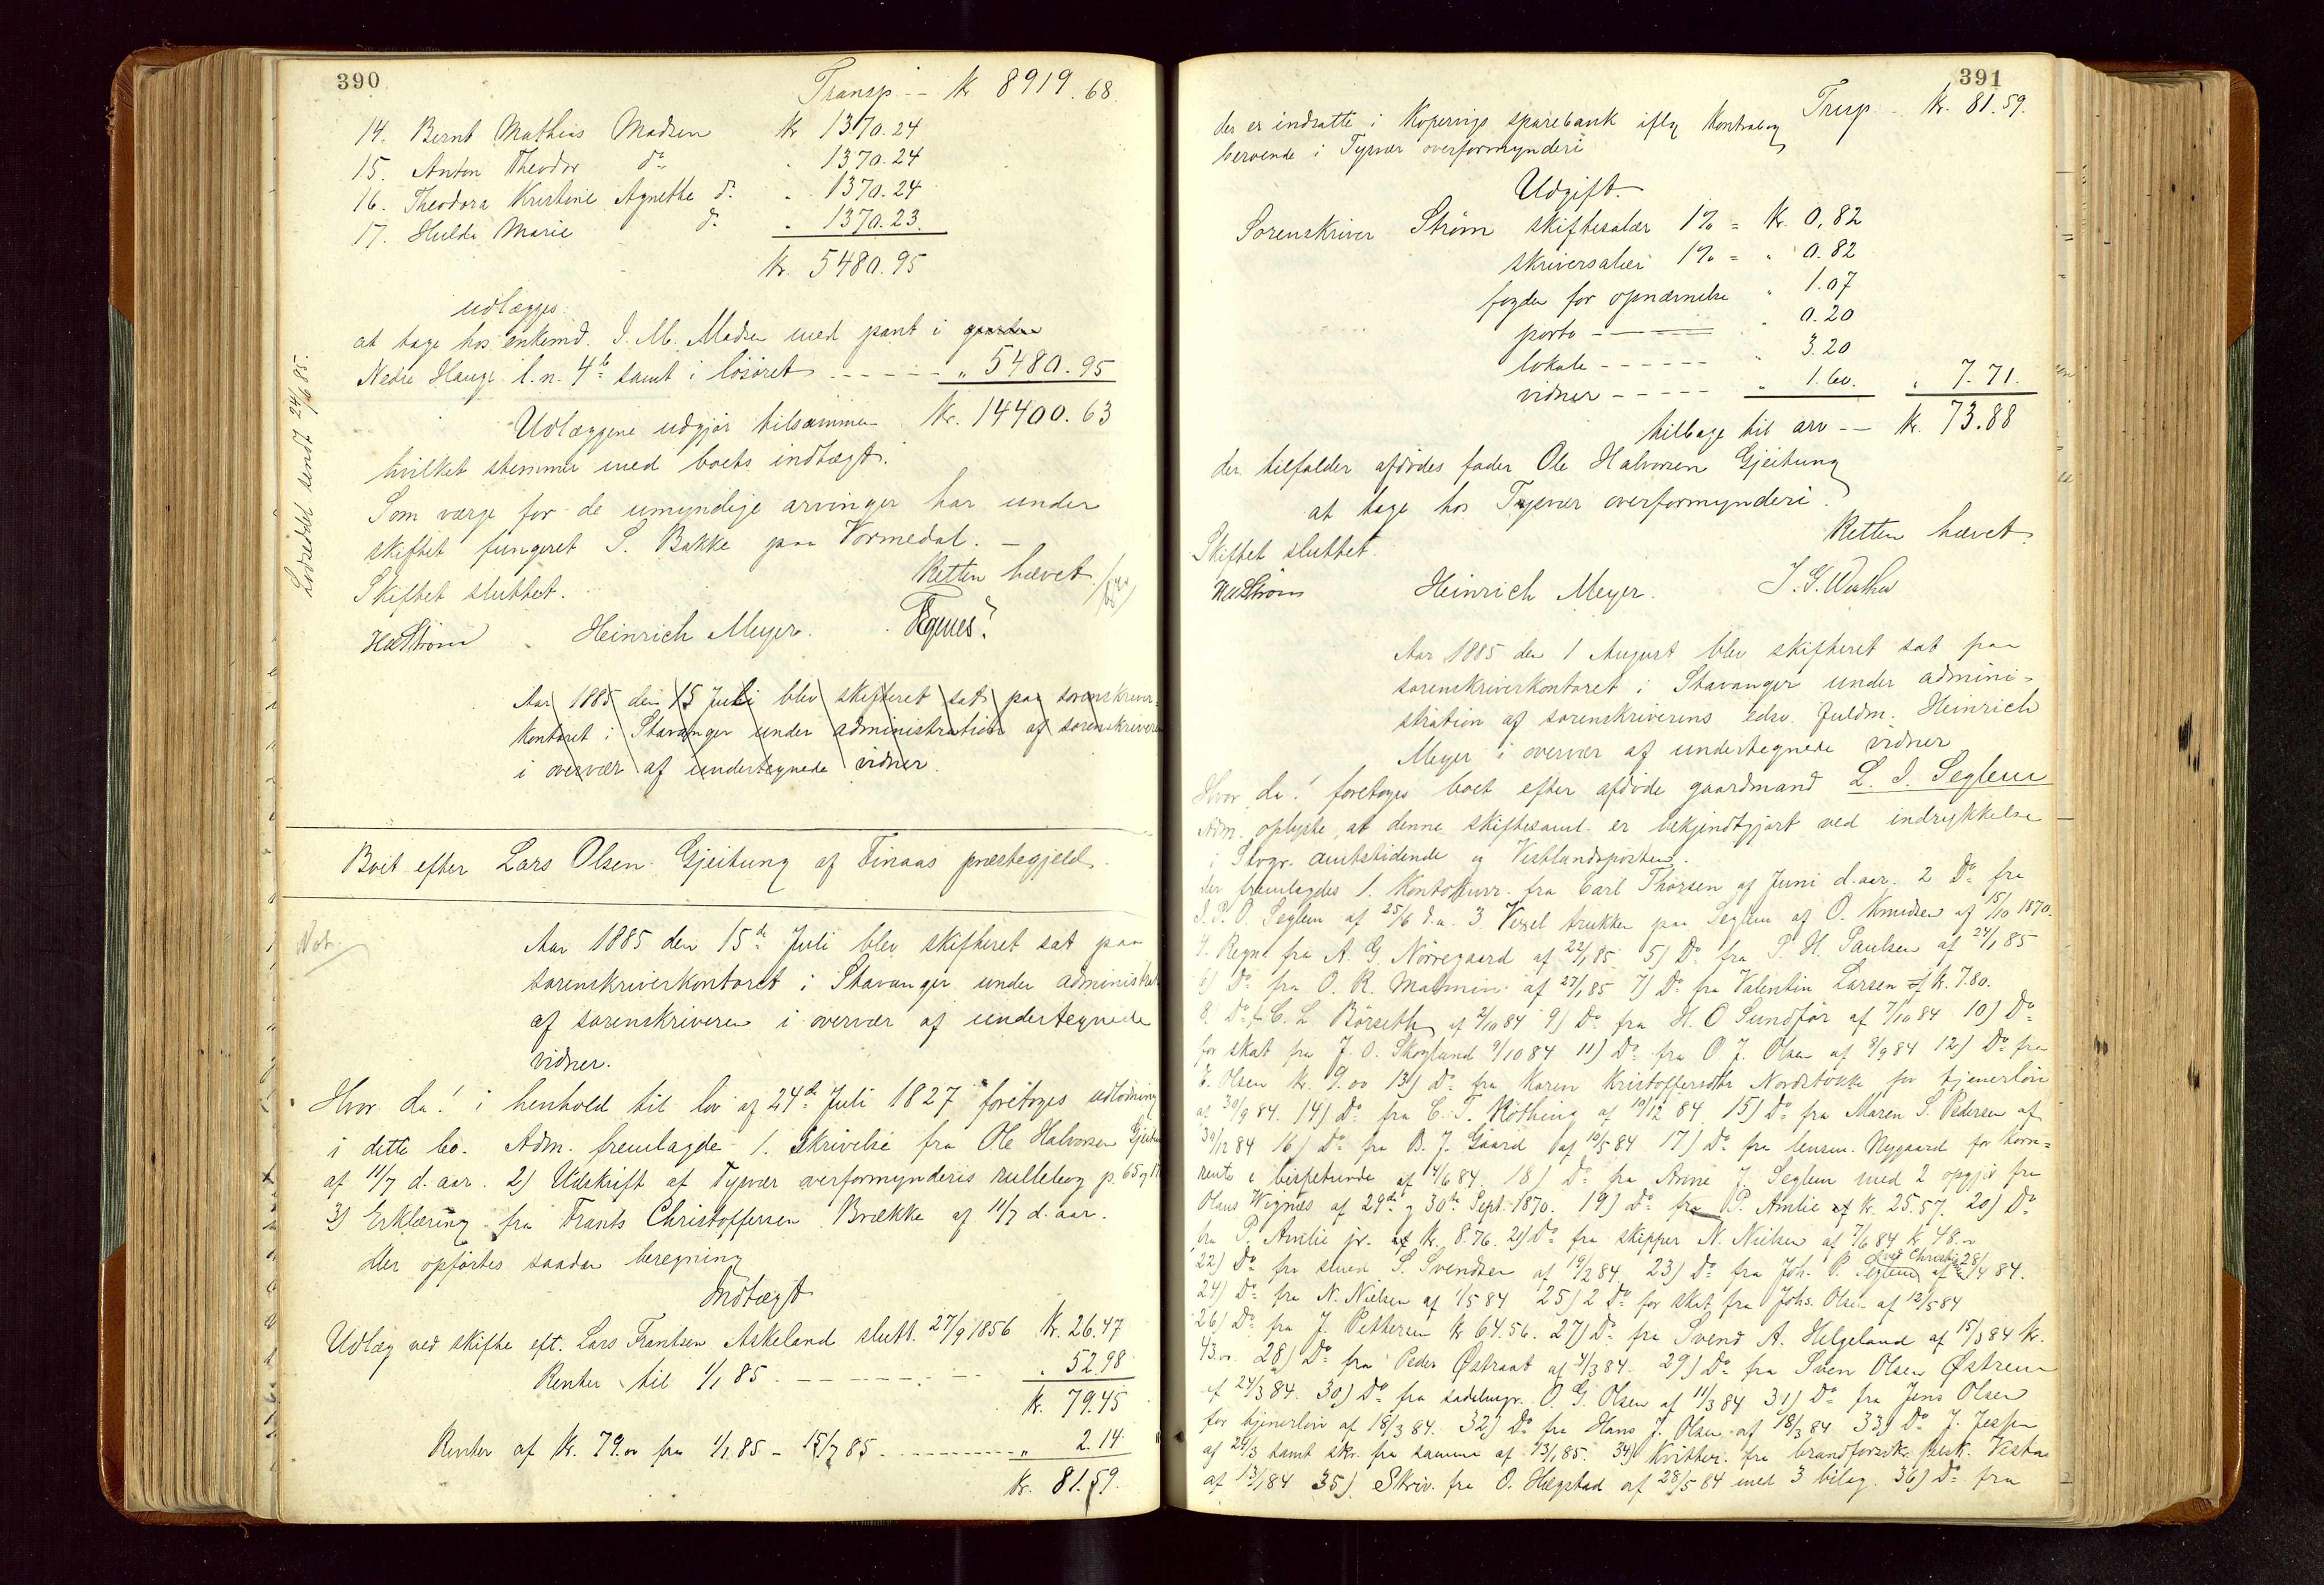 390
Transp -- Kr 8919.68.
14. Bernt Mathias Madsen Kr 1370.24
15. Anton Theodor do " 1370.24
16. Theodora Kristine Agnethe d. " 1370.24
17. Hulda Marie d. " 1370.23.
Kr. 5480.95
udlægges
at tage hos enkemd. I. M. Madsen med pant i garden
Nedre Hauge l.n. 4b samt i løsøret ------ " 5480.95
Lodseddel sendt 24/6 85.
Udlæggene udgjør tilsammen Kr. 14400.63
hvilket stemmer med boets indtægt.
Som værge for de umyndige arvinger har under
skiftet fungeret S. Bakke paa Vormedal. —
Retten hævet.
Skiftet sluttet.
Heinrich Meyer.
Aar 1885 den 15 Juli blev skifteret sat paa sorenskriver-
kontoret i Stavanger under administration af sorenskriveren
i overvær af undertegnede vidner.
Boet efter Lars Olsen Gjeitung af Finaas præstegjeld.
Not.
Aar 1885 den 15de Juli blev skifteret sat paa
sorenskriverkontoret i Stavanger under administrat
af sorenskriveren i overvær af undertegnede
vidner.
Hvor da! i henhold til lov af 24de Juli 1827 foretoges udlodning
i dette bo. Adm. fremlagde 1. Skrivelse fra Ole Halvorsen Gjeitu
af 11/7 d. aar. 2) Udskrift af Tysvær overformynderis rullebog p. 65 og
3) Erklæring fra Frants Christoffersen Brække af 11/7 d. aar.
der opførtes saadan beregning
Indtægt
Udlæg ved skifte eft. Lars Frantsen Askeland slutt. 27/9 1856 Kr. 26.47
Renter til 1/1 85 ------ " 52.98
Kr. 79.45
Renter af Kr. 79.00 fra 1/1 85 - 15/7 85 ------ " 2.14
Kr. 81.59.
391
Trsp. -- Kr. 81.59.
der er indsatte i Kopervigs sparebank iflg Kontrabog
beroende i Tysvær overformynderi
Udgift.
Sorenskriver Strøm skiftesalær 1% = Kr. 0.82
skriversalær 1% = " 0.82
fogden for opnævnelse " 1.07
porto ------ " 0.20
lokale ------ " 3.20
vidner ----- " 1.60. " 7.71.
tilbage til arv -- Kr. 73.88
der tilfalder afdødes fader Ole Halvorsen Gjeitung
at tage hos Tysvær overformynderi.
Retten hævet
Skiftet sluttet.
Heinrich Meyer.
Aar 1885 den 1 August blev skifteret sat paa
sorenskriverkontoret i Stavanger under admini-
stration af sorenskriverens edsv. fuldm. Heinrich
Meyer i overvær af undertegnede vidner
Hvor da! foretoges boet efter afdøde gaardmand L. I. Seglem
Adm. oplyste, at denne skiftesaml. er bekjendtgjort ved indrykkelse
i Stvgr. amtstidende og Vestlandsposten.
der fremlagdes 1. Kontokurr. fra Carl Thorsen af Juni d. aar. 2 Do fra
I. P. O. Seglem af 25/6 d.a. 3 Vexel trukken paa Seglem af O. Knudsen af 15/10 1870.
4. Regn. fra A. G. Nørregaard af 22/1 85. 5) Do fra P. H. Paulsen af 24/1 85
6) Do fra O. R. Malmin af 27/1 85 7) Do fra Valentin Larsen Kr. 7.80.
8. Do fr C. L. Børseth af 2/10 84 9) Do fra H. O Sundfør af 7/10 84 10) Do
for skat fra J. O. Skoglund 9/10 84 11) Do fra O. J. Olsen af 8/9 84 12) Do fra
E. Olsen Kr. 9.00 13) Do fra Karen Kristoffersdtr Nordstokke for tjenerløn
af 30/9 84. 14) Do fra C. T. Køthing af 10/12 84 15) Do fra Maren S. Pedersen af
30/12 84 16) Do fra B. J. Gaard af 10/5 84 17) Do fra lensm. Nygaard for korn-
rente af 4/6 84. 18) Do fra Anne J. Seglem med 2 opgjør fra
Olaus Wignæs af 29de og 30te Sept. 1870. 19) Do fra P. Amlie Kr. 25.57. 20) Do
fra P. Amlie jr. Kr. 8.76. 21) Do fra skipper N. Nielsen af 7/6 84 Kr 48.00
22) Do fra smed S. Svendsen af 19/2 84 23) Do fra Joh. P. Seglem af 28/4 84.
24) Do fra N. Nielsen af 1/5 84 25) 2 Do for skat fra Johs. Olsen af 12/5 84
26) Do fra J. Pettersen Kr 64.56. 27) Do fra Svend A. Helgeland af 15/3 84 Kr.
43.00. 28) Do fra Peder Østraat af 4/3 84. 29) Do fra Sven Olsen Østrem
af 24/3 84. 30) Do fra sadelmgr. O. G. Olsen af 11/3 84 31) Do fra Jens Olsen
for tjenerløn af 18/3 84. 32) Do fra Hans J. Olsen af 18/3 84 33) Do J. Jespen
af 29/3 samt skr. fra samme af 13/1 85. 34) Kvitter. fra brandforsikr. selsk. Vesta
af 13/1 84 35) Skriv. fra O. Hægstad af 28/5 84 med 3 bilag. 36) Do fra